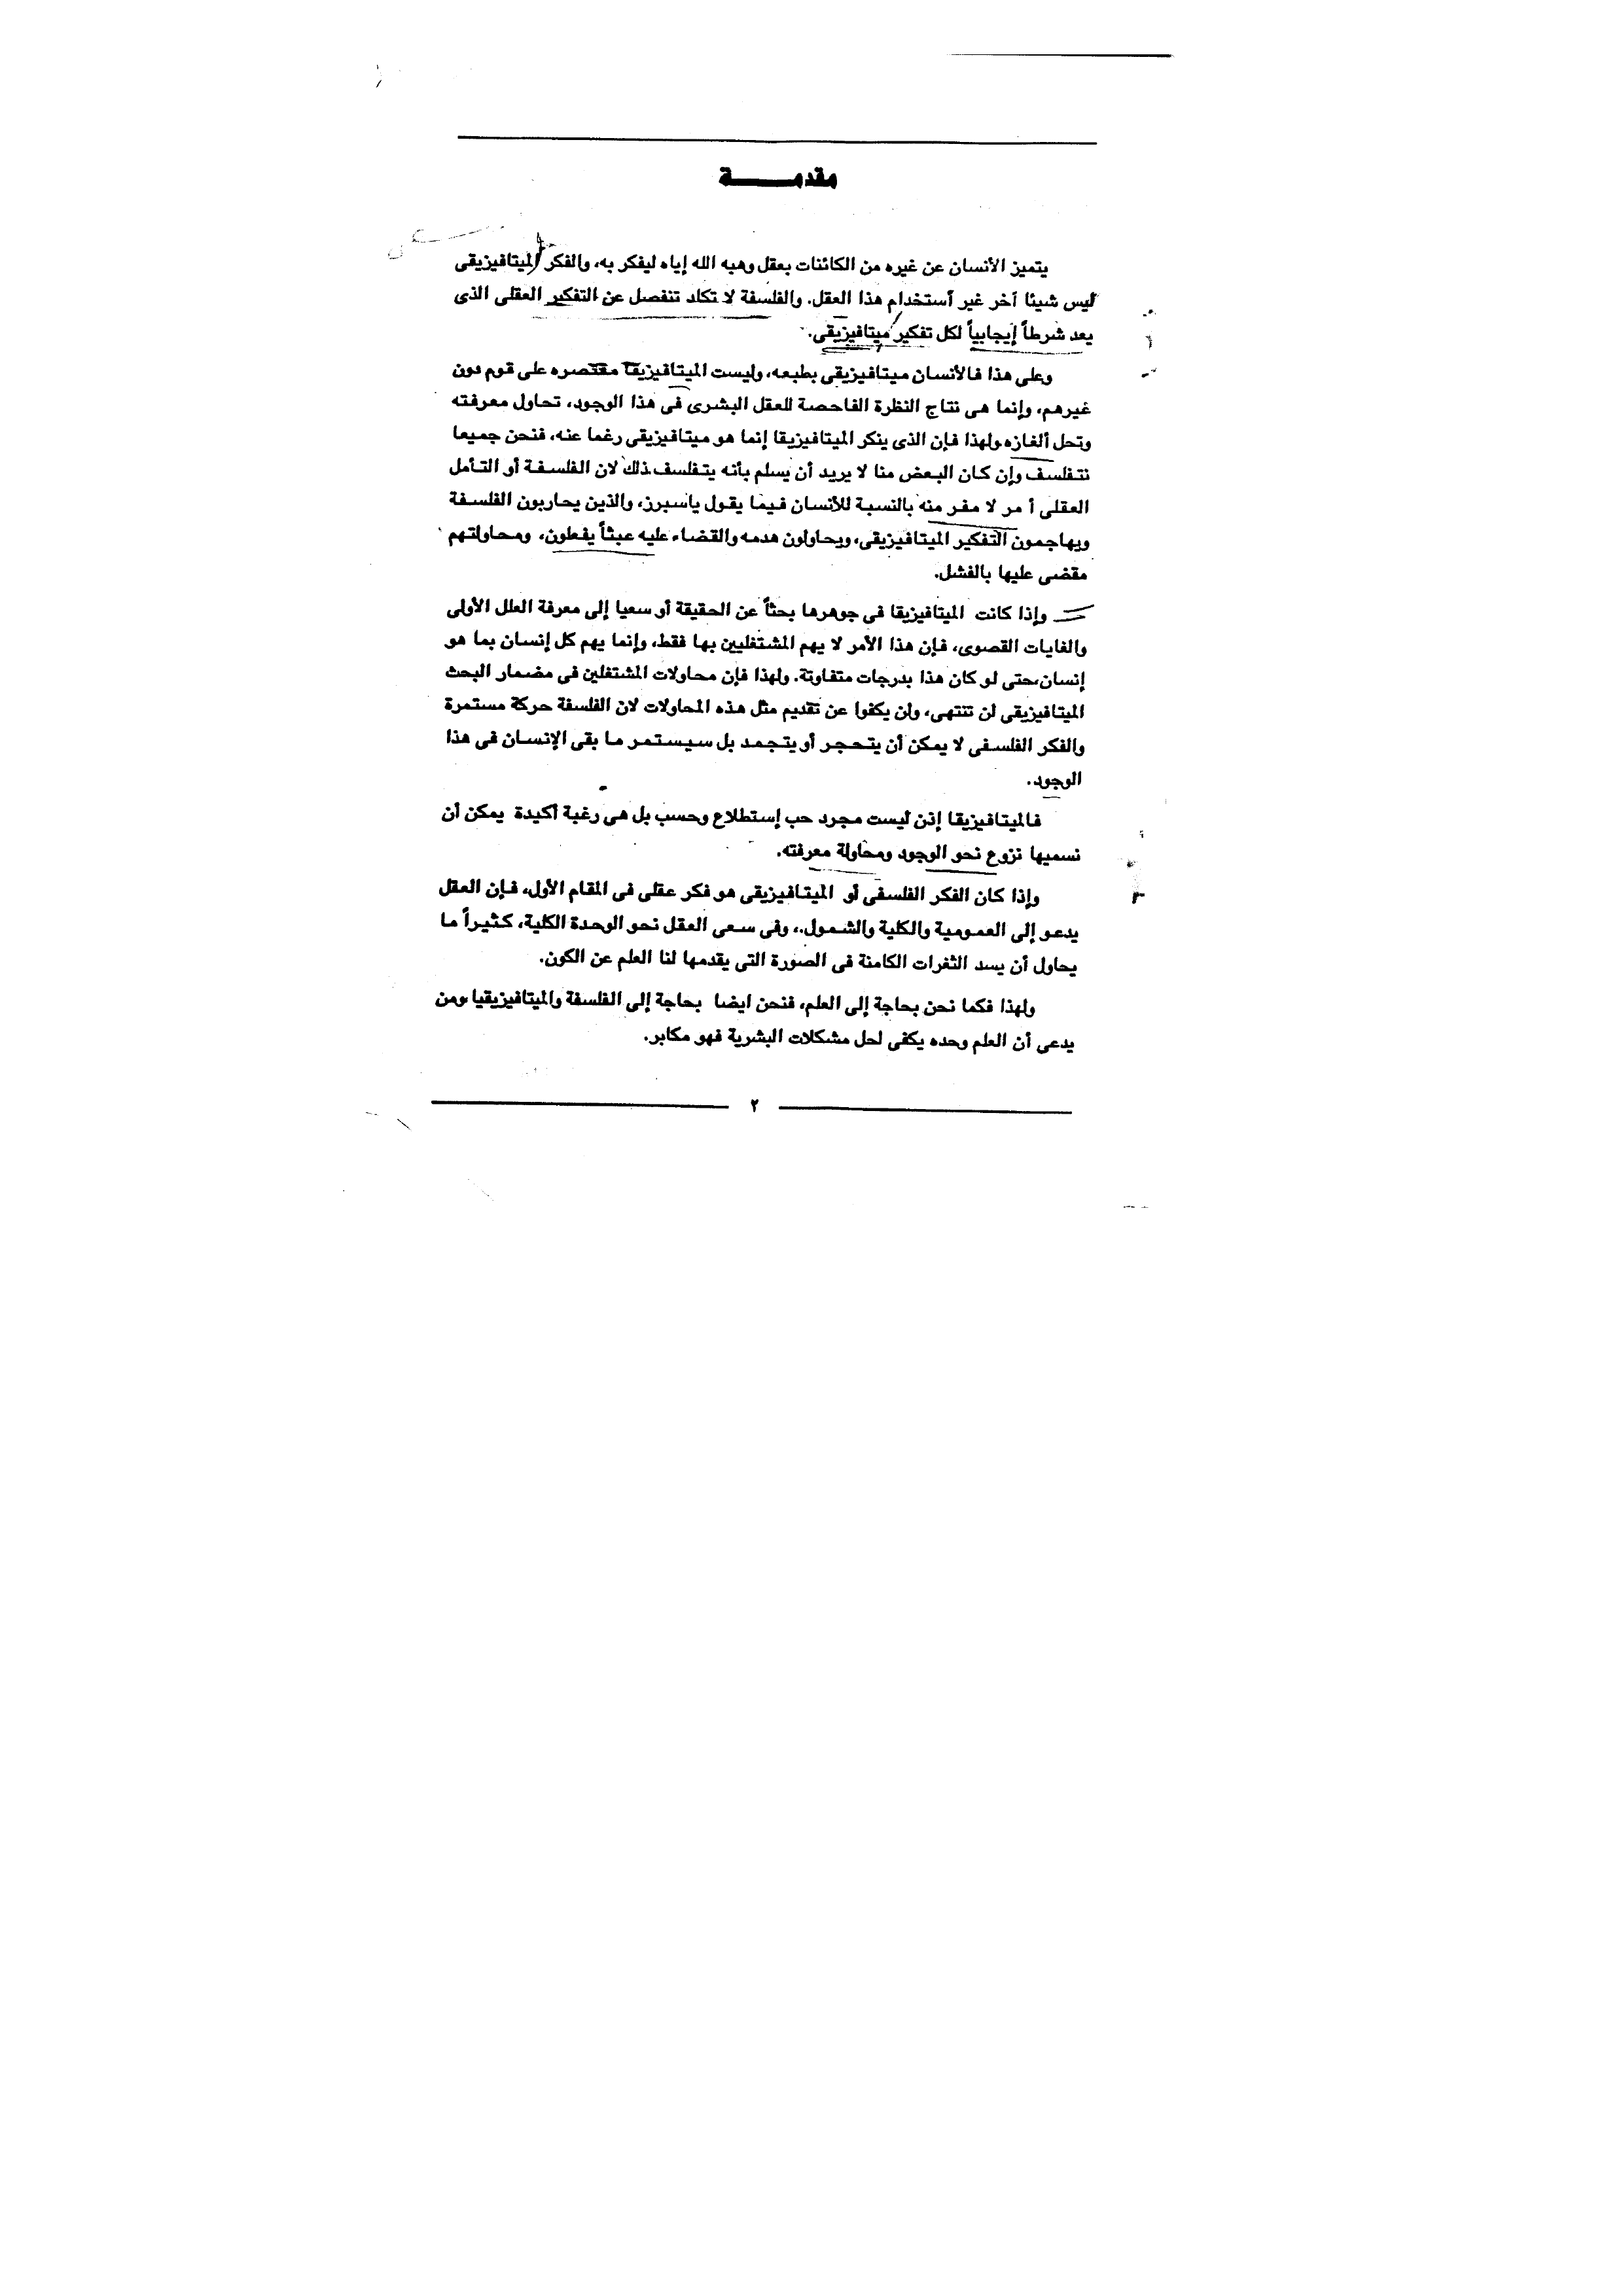 مقدمـــــة
يتميز الأنسان عن غيره من الكائنات بعقل وهبه الله إياه ليفكر به، والفكر الميتافيزيقى
ليس شيئا آخر غير أستخدام هذا العقل. والفلسفة لا تكاد تنفصل عن التفكير العقلى الذى
يعد شرطاً إيجابياً لكل تفكير ميتافيزيقى.
وعلى هذا فالأنسان ميتافيزيقى بطبعه، وليست الميتافيزيقا مقتصره على قوم دون
غيرهم، وإنما هى نتاج النظرة الفاحصة للعقل البشرى فى هذا الوجود، تحاول معرفته
وتحل ألغازه ولهذا فإن الذى ينكر الميتافيزيقا إنما هو ميتافيزيقى رغما عنه، فنحن جميعا
نتفلسف وإن كان البعض منا لا يريد أن يسلم بأنه يتفلسف ذلك لان الفلسفة أو التأمل
العقلى أ مر لا مفر منه بالنسبة للأنسان فيما يقول ياسبرز، والذين يحاربون الفلسفة
ويهاجمون التفكير الميتافيزيقى، ويحاولون هدمه والقضاء عليه عبثاً يفعلون، ومحاولتهم
مقضى عليها بالفشل.
وإذا كانت الميتافيزيقا فى جوهرها بحثاً عن الحقيقة أو سعيا إلى معرفة العلل الأولى
والغايات القصوى، فإن هذا الأمر لا يهم المشتغليين بها فقط، وإنما يهم كل إنسان بما هو
إنسان، حتى لو كان هذا بدرجات متفاوتة. ولهذا فإن محاولات المشتغلين فى مضمار البحث
الميتافيزيقى لن تنتهى، ولن يكفوا عن تقديم مثل هذه المحاولات لان الفلسفة حركة مستمرة
والفكر الفلسفى لا يمكن أن يتحجر أو يتجمد بل سيستمر ما بقى الإنسان فى هذا
الوجود.
فالميتافيزيقا إذن ليست مجرد حب إستطلاع وحسب بل هى رغبة أكيدة يمكن أن
نسميها نزوع نحو الوجود ومحاولة معرفته.
وإذا كان الفكر الفلسفى أو الميتافيزيقى هو فكر عقلى فى المقام الأول، فإن العقل
يدعو إلى العمومية والكلية والشمول.، وفى سعى العقل نحو الوحدة الكلية، كثيراً ما
يحاول أن يسد الثغرات الكامنة فى الصورة التى يقدمها لنا العلم عن الكون.
ولهذا فكما نحن بحاجة إلى العلم، فنحن ايضا بحاجة إلى الفلسفة والميتافيزيقيا، ومن
يدعى أن العلم وحده يكفى لحل مشكلات البشرية فهو مكابر.
٢